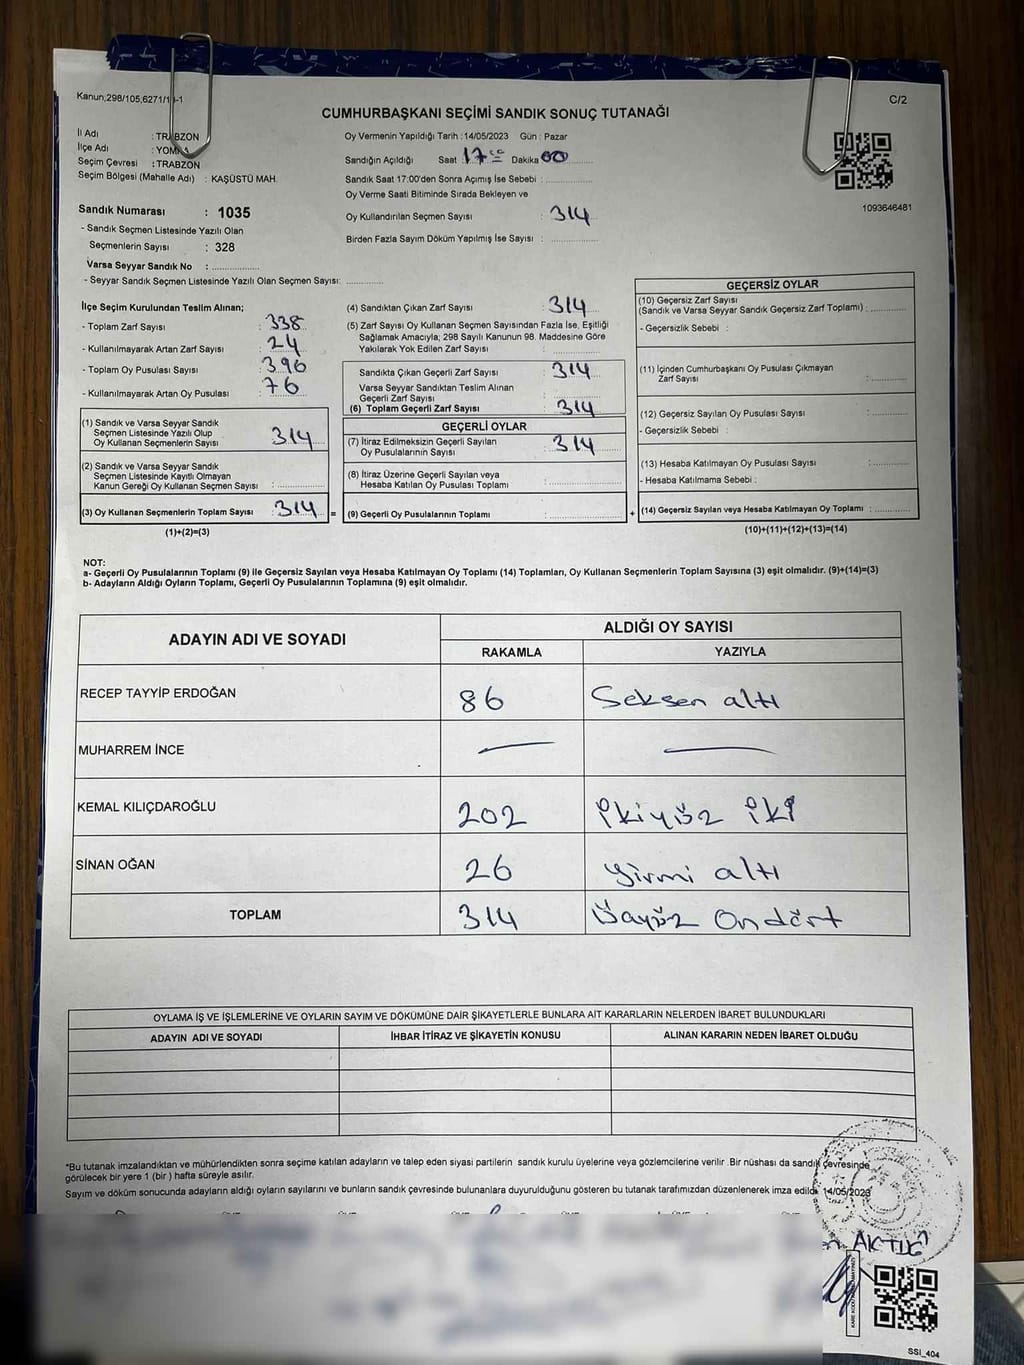 Kanun;298/105,6271/1 -1
C/2
CUMHURBAŞKANI SEÇİMİ SANDIK SONUÇ TUTANAĞI
İl Adı : TRABZON
İlçe Adı : YOMRA
Seçim Çevresi : TRABZON
Seçim Bölgesi (Mahalle Adı) : KAŞÜSTÜ MAH.
Sandık Numarası : 1035
- Sandık Seçmen Listesinde Yazılı Olan
Seçmenlerin Sayısı : 328
Varsa Seyyar Sandık No : ................
- Seyyar Sandık Seçmen Listesinde Yazılı Olan Seçmen Sayısı: ............
Oy Vermenin Yapıldığı Tarih : 14/05/2023 Gün : Pazar
Sandığın Açıldığı Saat : 17 Dakika 00
Sandık Saat 17:00'den Sonra Açımış İse Sebebi : ................
Oy Verme Saati Bitiminde Sırada Bekleyen ve
Oy Kullandırılan Seçmen Sayısı : 314
Birden Fazla Sayım Döküm Yapılmış İse Sayısı : ................
1093646481
İlçe Seçim Kurulundan Teslim Alınan;
- Toplam Zarf Sayısı : 338
- Kullanılmayarak Artan Zarf Sayısı : 24
- Toplam Oy Pusulası Sayısı : 396
- Kullanılmayarak Artan Oy Pusulası : 76
(1) Sandık ve Varsa Seyyar Sandık
Seçmen Listesinde Yazılı Olup
Oy Kullanan Seçmenlerin Sayısı : 314
(2) Sandık ve Varsa Seyyar Sandık
Seçmen Listesinde Kayıtlı Olmayan
Kanun Gereği Oy Kullanan Seçmen Sayısı : ................
(3) Oy Kullanan Seçmenlerin Toplam Sayısı : 314 =
(1)+(2)=(3)
(4) Sandıktan Çıkan Zarf Sayısı : 314
(5) Zarf Sayısı Oy Kullanan Seçmen Sayısından Fazla İse, Eşitliği
Sağlamak Amacıyla; 298 Sayılı Kanunun 98. Maddesine Göre
Yakılarak Yok Edilen Zarf Sayısı : ................
Sandıkta Çıkan Geçerli Zarf Sayısı : 314
Varsa Seyyar Sandıktan Teslim Alınan
Geçerli Zarf Sayısı : ................
(6) Toplam Geçerli Zarf Sayısı : 314
GEÇERLİ OYLAR
(7) İtiraz Edilmeksizin Geçerli Sayılan
Oy Pusulalarının Sayısı : 314
(8) İtiraz Üzerine Geçerli Sayılan veya
Hesaba Katılan Oy Pusulası Toplamı : ................
(9) Geçerli Oy Pusulalarının Toplamı : ................ +
GEÇERSİZ OYLAR
(10) Geçersiz Zarf Sayısı
(Sandık ve Varsa Seyyar Sandık Geçersiz Zarf Toplamı) : ............
- Geçersizlik Sebebi :
(11) İçinden Cumhurbaşkanı Oy Pusulası Çıkmayan
Zarf Sayısı : ............
(12) Geçersiz Sayılan Oy Pusulası Sayısı : ............
- Geçersizlik Sebebi :
(13) Hesaba Katılmayan Oy Pusulası Sayısı : ............
- Hesaba Katılmama Sebebi :
(14) Geçersiz Sayılan veya Hesaba Katılmayan Oy Toplamı : ............
(10)+(11)+(12)+(13)=(14)
NOT:
a- Geçerli Oy Pusulalarının Toplamı (9) ile Geçersiz Sayılan veya Hesaba Katılmayan Oy Toplamı (14) Toplamları, Oy Kullanan Seçmenlerin Toplam Sayısına (3) eşit olmalıdır. (9)+(14)=(3)
b- Adayların Aldığı Oyların Toplamı, Geçerli Oy Pusulalarının Toplamına (9) eşit olmalıdır.
ADAYIN ADI VE SOYADI
ALDIĞI OY SAYISI
RAKAMLA YAZIYLA
RECEP TAYYİP ERDOĞAN 86 Seksen altı
MUHARREM İNCE — —
KEMAL KILIÇDAROĞLU 202 İkiyüz iki
SİNAN OĞAN 26 yirmi altı
TOPLAM 314 Üçyüz Ondört
OYLAMA İŞ VE İŞLEMLERİNE VE OYLARIN SAYIM VE DÖKÜMÜNE DAİR ŞİKAYETLERLE BUNLARA AİT KARARLARIN NELERDEN İBARET BULUNDUKLARI
ADAYIN ADI VE SOYADI İHBAR İTİRAZ VE ŞİKAYETİN KONUSU ALINAN KARARIN NEDEN İBARET OLDUĞU
*Bu tutanak imzalandıktan ve mühürlendikten sonra seçime katılan adayların ve talep eden siyasi partilerin sandık kurulu üyelerine veya gözlemcilerine verilir .Bir nüshası da sandık çevresinde
görülecek bir yere 1 (bir ) hafta süreyle asılır.
Sayım ve döküm sonucunda adayların aldığı oyların sayılarını ve bunların sandık çevresinde bulunanlara duyurulduğunu gösteren bu tutanak tarafımızdan düzenlenerek imza edildi. 14/05/2023
SSI_404